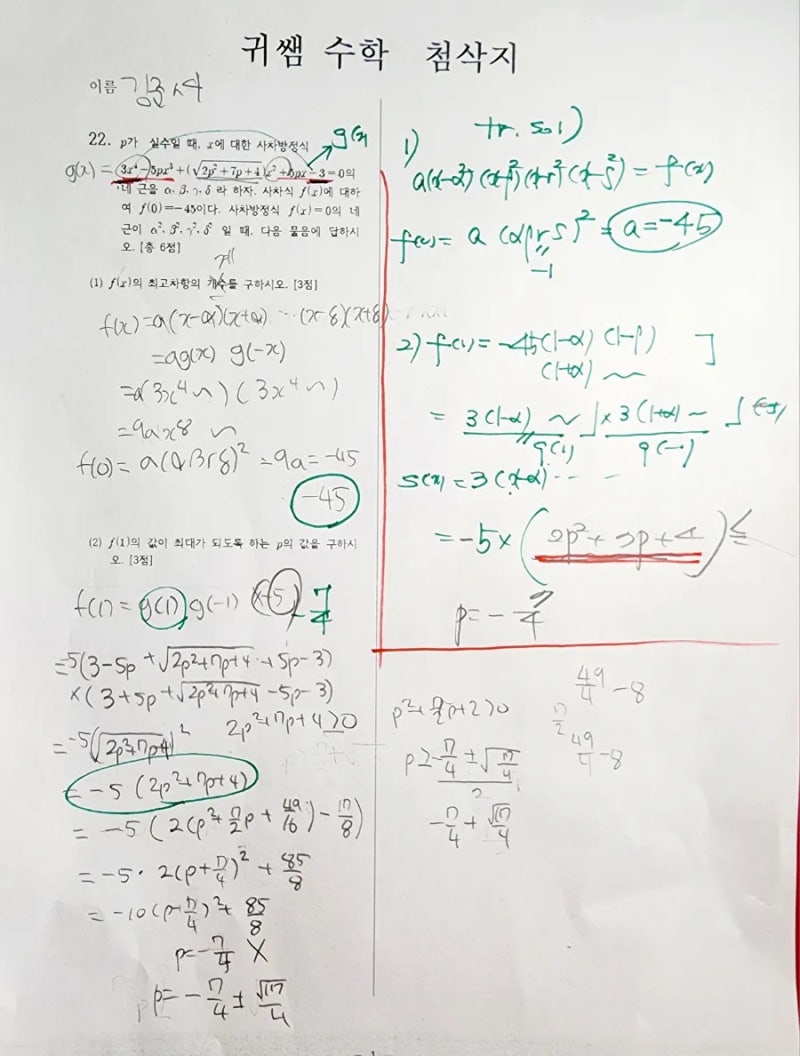 귀쌤 수학 첨삭지
이름
22. p가 실수일 때, x에 대한 사차방정식
g(x) = 3x⁴-5px³+(√(2p²+7p+4))x²+5px-3=0의
네 근을 α, β, γ, δ 라 하자. 사차식 f(x)에 대하
여 f(0)=-45이다. 사차방정식 f(x)=0의 네
근이 α², β², γ², δ² 일 때, 다음 물음에 답하시
오. [총 6점]
계
(1) f(x)의 최고차항의 개수를 구하시오. [3점]
f(x)=a(x-α)(x+α) ··· (x-δ)(x+δ)
=ag(x) g(-x)
=a(3x⁴~)(3x⁴~)
=9ax⁸ ~
f(0)= a(αβγδ)² =9a=-45
-45
(2) f(1)의 값이 최대가 되도록 하는 p의 값을 구하시
오. [3점]
f(1)=g(1)g(-1) (×-5) -7/4
=-5(3-5p+√(2p²+7p+4)+5p-3)
×(3+5p+√(2p²+7p+4)-5p-3)
=-5(√(2p²+7p+4))² 2p²+7p+4≥0
=-5(2p²+7p+4)
= -5(2(p²+7/2p+49/16)-17/8)
=-5·2(p+7/4)²+85/8
=-10(p+7/4)²+85/8
p=-7/4 X
p=-7/4±√17/4
1)
a(x-α²)(x-β²)(x-γ²)(x-δ²)=f(x)
f(0)= a(αβγδ)² = a=-45
-1
2) f(1)=-45(1-α)(1-β)
(1+α) ~
= 3(1-α) ~ × 3(1+α) ~
g(1) g(-1)
g(x)=3(x-α)···
=-5×(2p²+7p+4) ≤
p=-7/4
p²+7/2p+2≥0
49/4-8
7/2
49/4-8
-7/4+√17/4
- 1 -